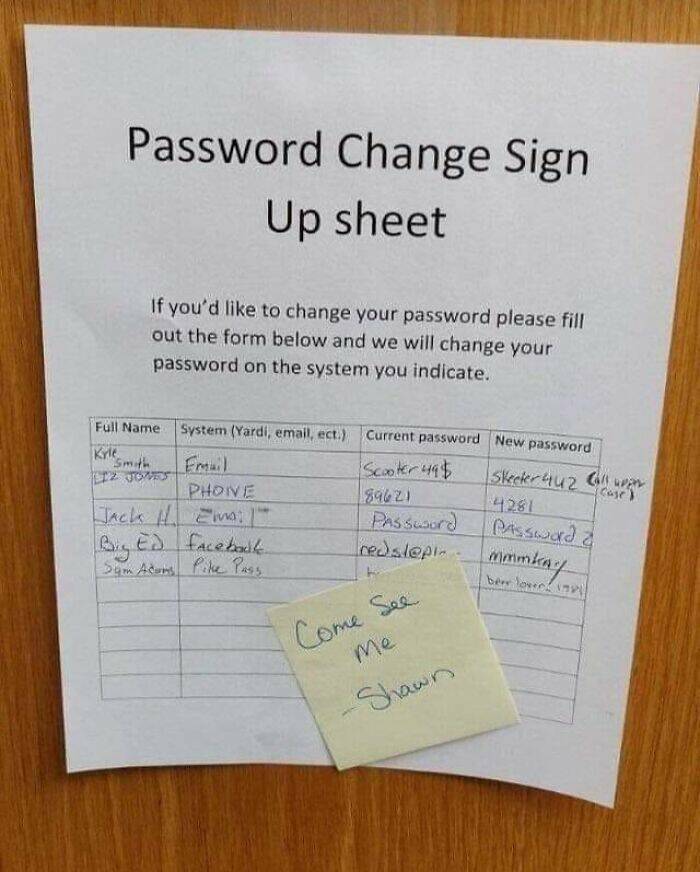 Password Change Sign
Up sheet
If you'd like to change your password please fill
out the form below and we will change your
password on the system you indicate.
Full Name System (Yardi, email, ect.) Current password New password
Kyle Smith Email Scooter49$ Skeeter4U2 (all upper case)
LIZ JONES PHONE 89621 4281
Jack H. Email Password PAssword 2
Big Ed facebook mmmkay
Sam Adams Pike Pass beer lover
Come See
me
- Shawn